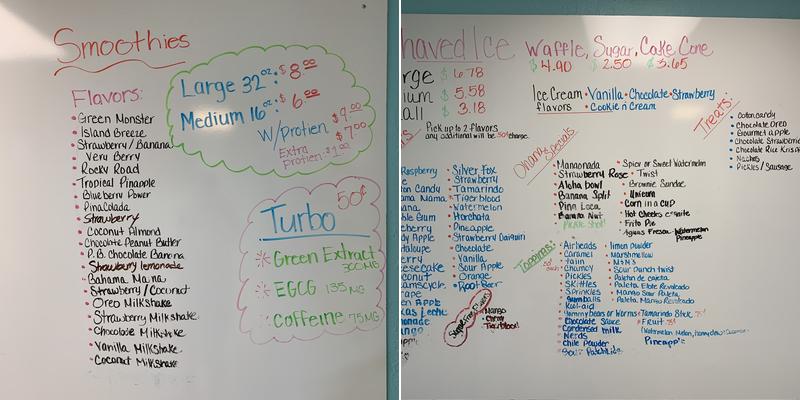 Smoothies
Large 32oz: $8.00
Medium 16oz: $6.00
W/Protien $9.00
$7.00
Extra protien: $1.00
Flavors:
Green Monster
Island Breeze
Strawberry/Banana
Very Berry
Rocky Road
Tropical Pinapple
Blueberry Power
Pina Colada
Strawberry
Coconut Almond
Chocolate Peanut Butter
P.B. Chocolate Banana
Strawberry lemonade
Bahama Mama
Strawberry/Coconut
Oreo Milkshake
Strawberry Milkshake
Chocolate Milkshake
Vanilla Milkshake
Coconut Milkshake
50¢
Turbo
Green Extract
300MG
EGCG 135 MG
Caffeine 75MG
haved Ice
rge $6.78
ium $5.58
all $3.18
Pick up to 2-flavors
any additional will be 50¢ charge.
Waffle, Sugar, Cake Cone
$4.90 $2.50 $3.65
Ice Cream • Vanilla • Chocolate • Strawberry
flavors • Cookie n Cream
Treats:
Cotton candy
Chocolate Oreo
Gourmet apple
Chocolate Strawberrie
Chocolate Rice Krisp
Nachos
Pickles/Sausage
Raspberry
on Candy
ama Mama
ana
ble Gum
berry
dy Apple
taloupe
erry
eesecake
conut
en Apple
monade
Silver Fox
Strawberry
Tamarindo
Tiger blood
Watermelon
Horchata
Pineapple
Strawberry Daiquiri
Chocolate
Vanilla
Sour Apple
Orange
Root Beer
Sugar Free Flavors
Mango
Cherry
Tiger blood
Specials
Mangonada
Strawberry Rose
Aloha bowl
Banana Split
Pina Loca
Banana Nut
Pickle Shot
Spicy or Sweet Watermelon
Twist
Brownie Sundae
Unicorn
Corn in a cup
Hot Cheetos
Frito Pie
Aguas Frescas - Watermelon
Pineapple
Toppings:
Airheads
Caramel
Tajin
Chamoy
Pickles
Skittles
Sprinkles
Gumballs
Kool-aid
Gummy bears or Worms
Chocolate Sauce
Condensed milk
Nerds
Chile Powder
Sour Patch Kids
limon powder
Marshmallow
M&Ms
Sour punch twist
Paleta Elote Revolcado
Mango Sour Paleta
Paleta Mango Revolcado
Tamarindo Stick 75¢
Fruit
Pineapple